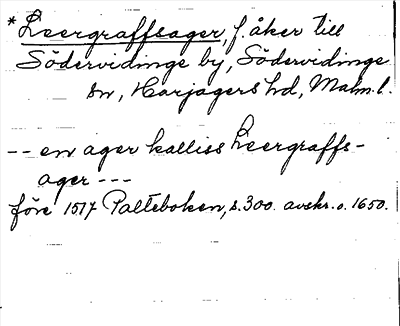 * Leergraffsager, f. åker till
Södervidinge by, Södervidinge
sn, Harjagers hd, Malm. l.
-- en ager kalliss Leergraffs-
ager ---
före 1517 Palteboken, s. 300. avskr. o. 1650.